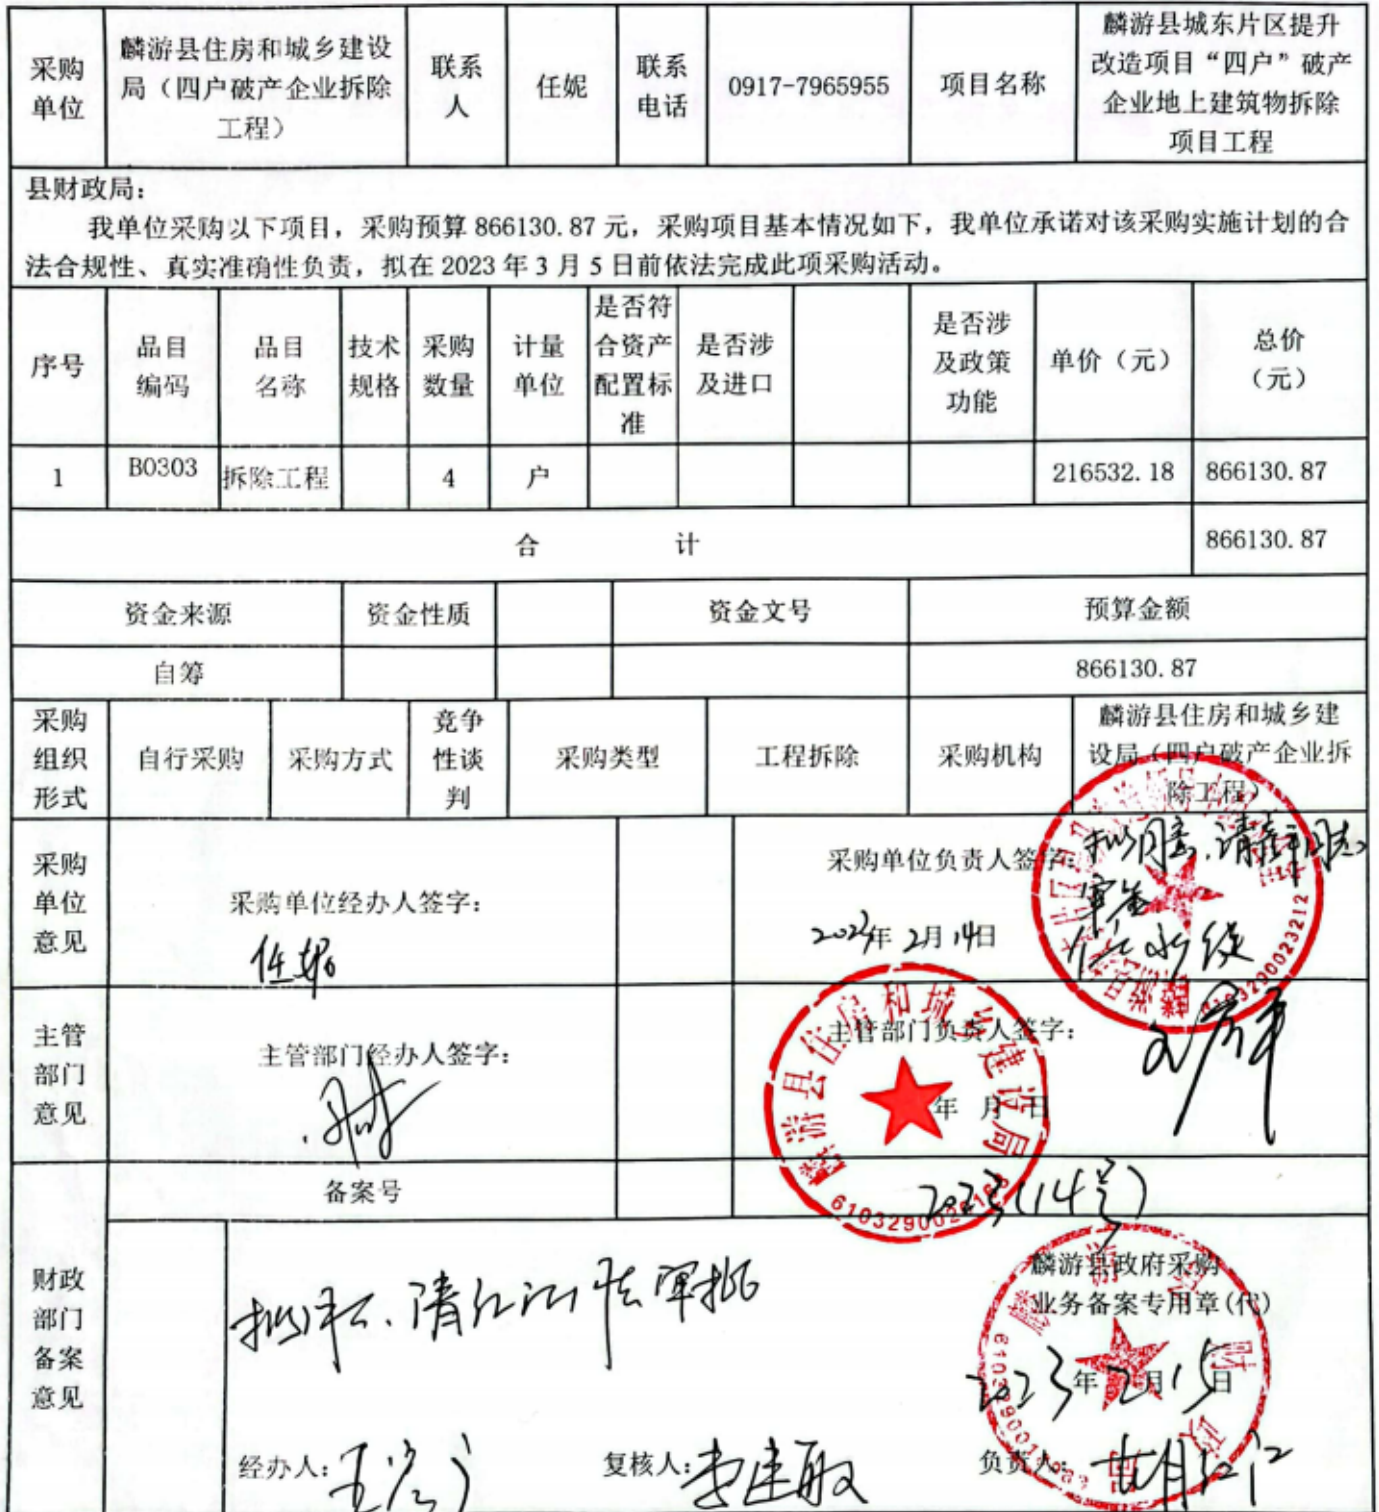 采购单位
麟游县住房和城乡建设局（四户破产企业拆除工程）
联系人
任妮
联系电话
0917-7965955
项目名称
麟游县城东片区提升改造项目“四户”破产企业地上建筑物拆除项目工程
县财政局：
我单位采购以下项目，采购预算 866130.87 元，采购项目基本情况如下，我单位承诺对该采购实施计划的合
法合规性、真实准确性负责，拟在 2023 年 3 月 5 日前依法完成此项采购活动。
序号
品目编码
品目名称
技术规格
采购数量
计量单位
是否符合资产配置标准
是否涉及进口
是否涉及政策功能
单价（元）
总价（元）
1
B0303
拆除工程
4
户
216532.18
866130.87
合 计
866130.87
资金来源
资金性质
资金文号
预算金额
自筹
866130.87
采购组织形式
自行采购
采购方式
竞争性谈判
采购类型
工程拆除
采购机构
麟游县住房和城乡建设局（四户破产企业拆除工程）
采购单位意见
采购单位经办人签字：
任妮
采购单位负责人签字：
2023年 2月 14日
主管部门意见
主管部门经办人签字：
主管部门负责人签字：
年 月 日
麟游县住房和城乡建设局
备案号
2023(14号)
财政部门备案意见
麟游县政府采购
业务备案专用章(代)
2023年 2月 15日
经办人：
复核人：李建敏
负责人：